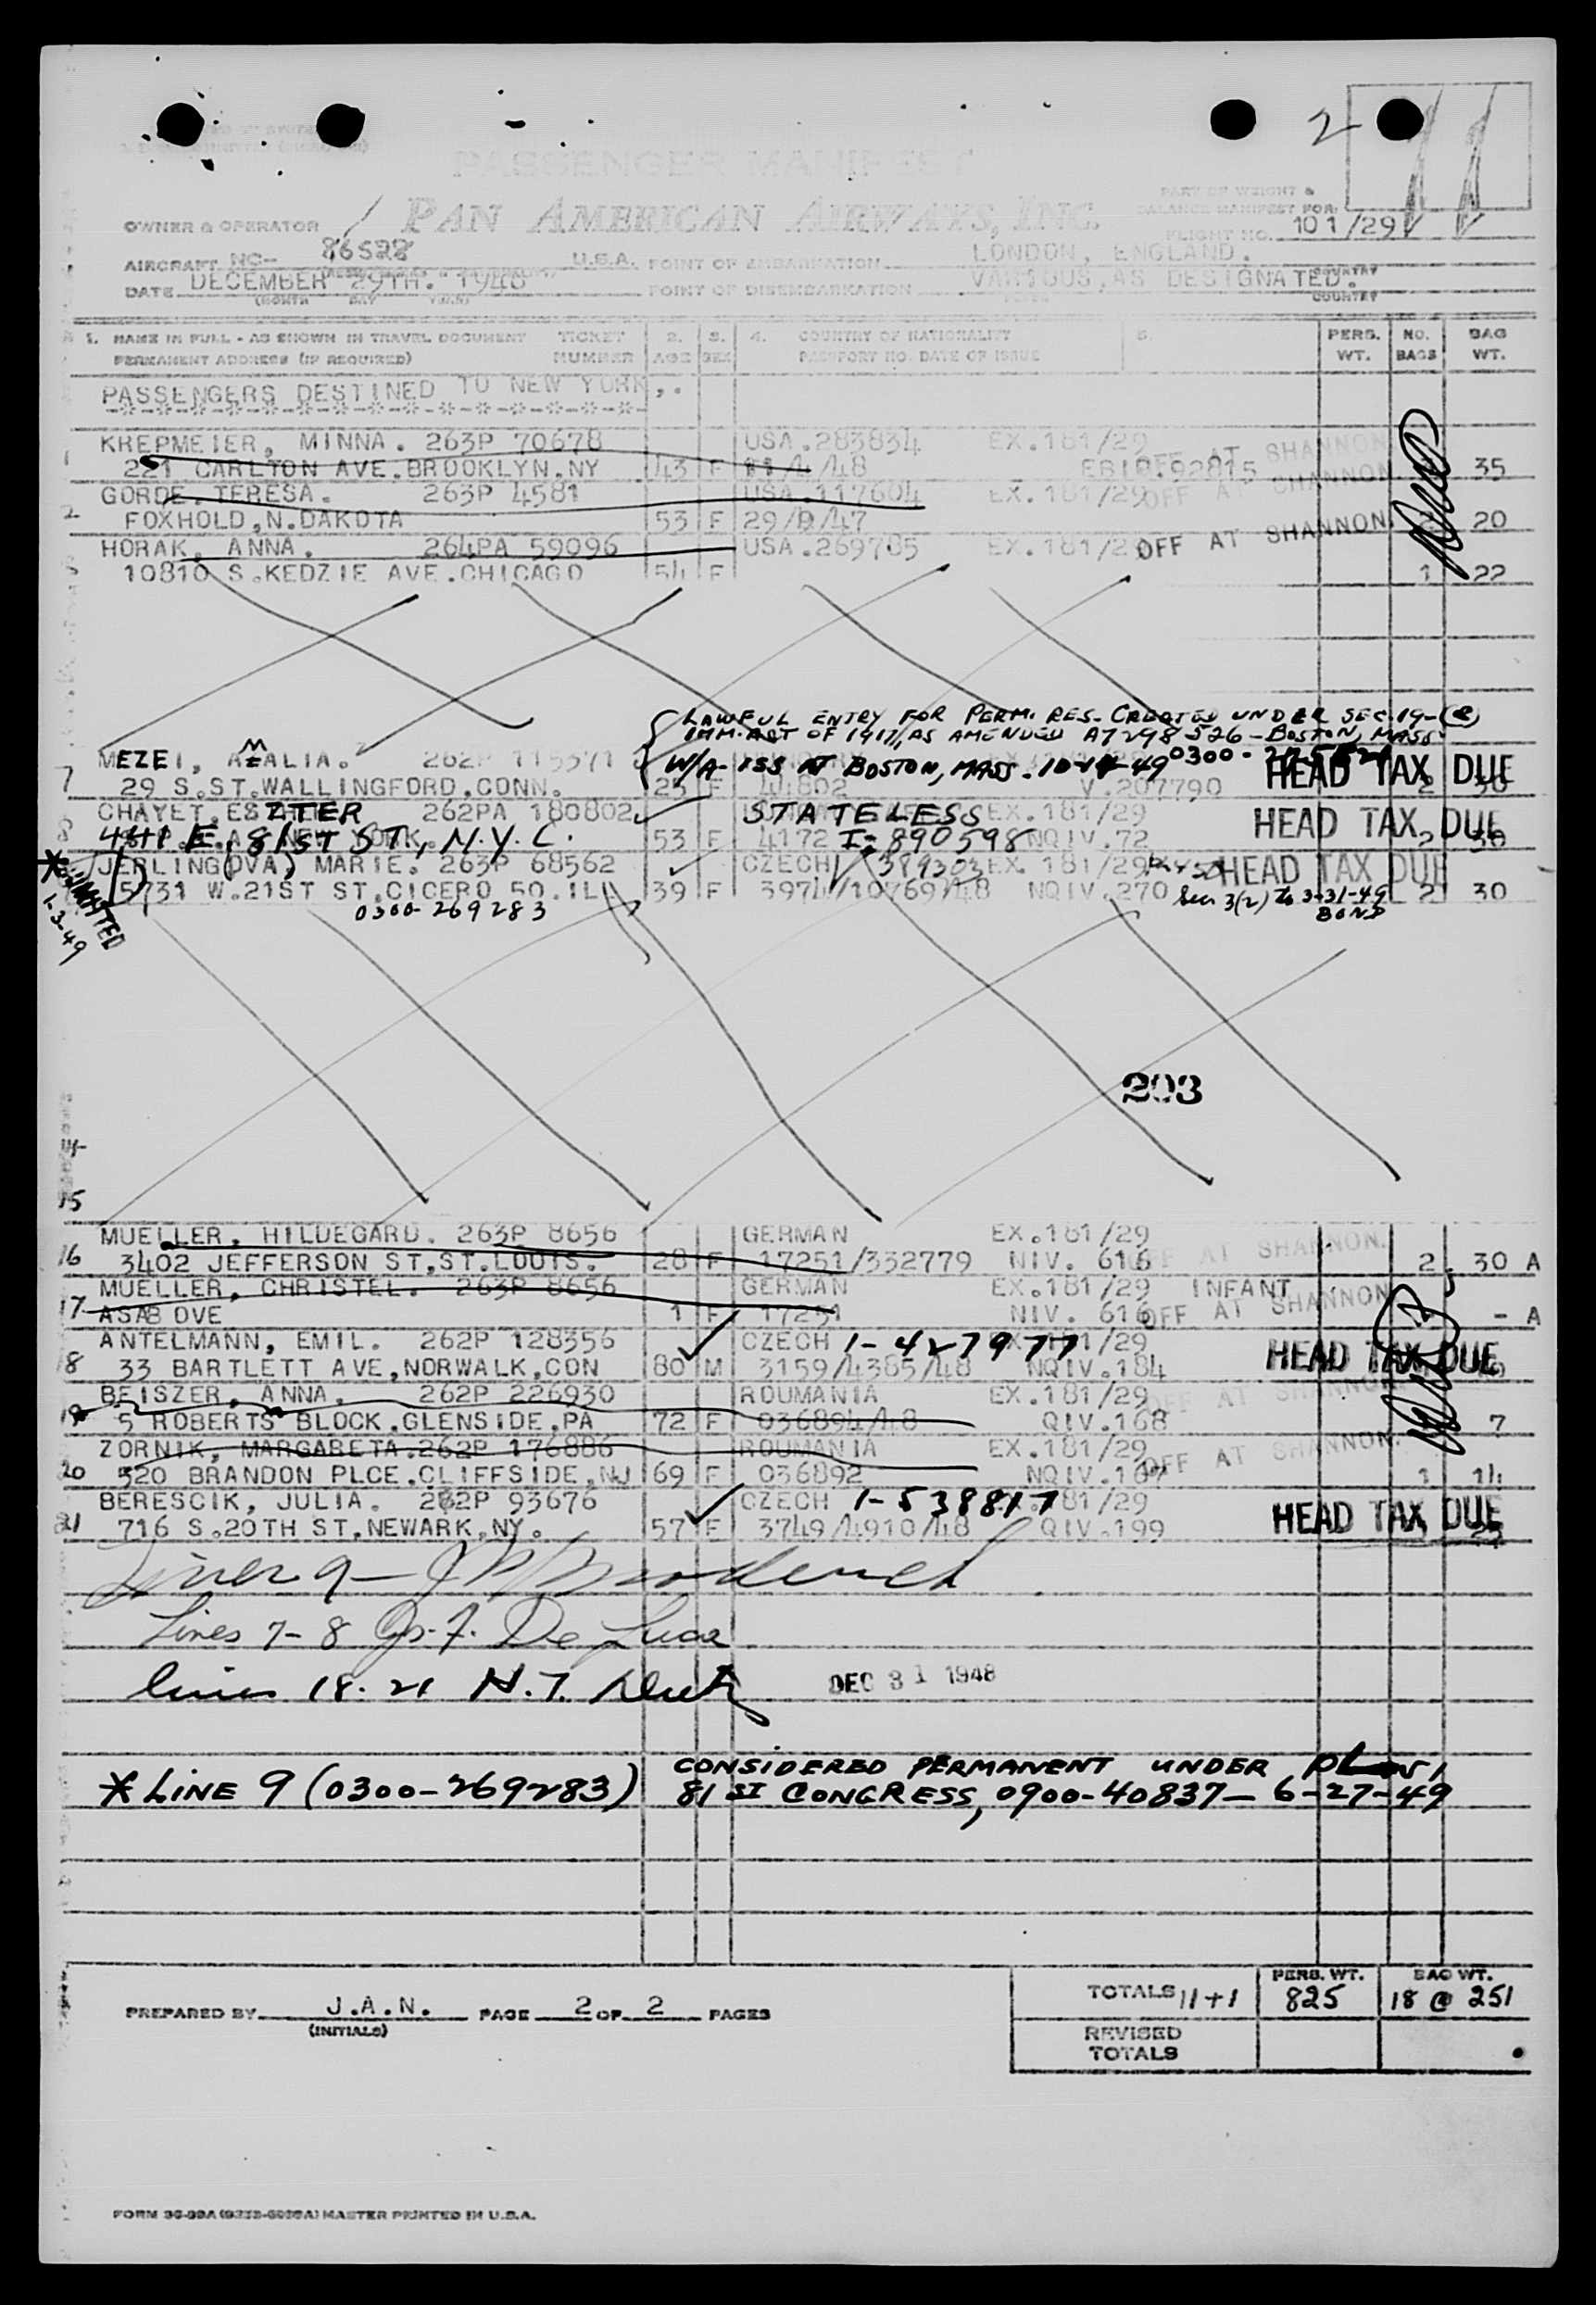 2
PASSENGER MANIFEST
PART OF WEIGHT &
BALANCE MANIFEST FOR:
OWNER & OPERATOR PAN AMERICAN AIRWAYS, INC.
FLIGHT NO. 101/29
AIRCRAFT NC- 86528 U.S.A. POINT OF EMBARKATION LONDON, ENGLAND.
DATE DECEMBER 29TH. 1948 POINT OF DISEMBARKATION VARIOUS, AS DESIGNATED.
(MONTH DAY YEAR) COUNTRY
1. NAME IN FULL - AS SHOWN IN TRAVEL DOCUMENT TICKET 2. 3. 4. COUNTRY OF NATIONALITY 5. PERS. NO. BAG
PERMANENT ADDRESS (IF REQUIRED) NUMBER AGE SEX PASSPORT NO. DATE OF ISSUE WT. BAGS WT.
PASSENGERS DESTINED TO NEW YORK,.
-*-*-*-*-*-*-*-*-*-*-*-*-*-*-*-
KREPMEIER, MINNA. 263P 70678 USA.283834 EX.181/29 OFF AT SHANNON
1 221 CARLTON AVE.BROOKLYN.NY 43 F /48 92815 35
GORDE. TERESA. 263P 4581 USA.117604 EX.181/29 OFF AT SHANNON
2 FOXHOLD,N.DAKOTA 53 F 29/9/47 20
HORAK, ANNA. 264PA 59096 USA.269785 EX.181/29 OFF AT SHANNON
10810 S.KEDZIE AVE.CHICAGO 54 F 1 22
LAWFUL ENTRY FOR PERM. RES. CREATED UNDER SEC 19-(c)
IMM. ACT OF 1917, AS AMENDED A7298526 - BOSTON, MASS
MEZEI, AMALIA. 262P 115571
W/A- ISS AT BOSTON, MASS. 0300- HEAD TAX DUE
7 29 S.ST.WALLINGFORD,CONN. 23 F V.207790
CHAYET,ESZTER 262PA 180802 STATELESS EX.181/29 HEAD TAX DUE
8 441 E. 81ST ST., N.Y.C. 53 F 4172 I-890598 NQIV.72 2 30
JERLING(OVA) MARIE. 263P 68562 CZECH 389303 EX. 181/29 HEAD TAX DUE
* 5731 W.21ST ST.CICERO 50.ILL 39 F 3974/10769/48 NQIV.270 2 30
ADMITTED
1-3-49
0300-269283
Sec 3(2) To 3-31-49
BOND
203
14
15
MUELLER, HILDEGARD. 263P 8656 GERMAN EX.181/29
16 3402 JEFFERSON ST,ST.LOUIS. 28 F 17251/332779 NIV. 616 OFF AT SHANNON. 2 30 A
MUELLER, CHRISTEL. 263P 8656 GERMAN EX.181/29 INFANT
17 ASAB OVE 1 F 17251 NIV. 616 OFF AT SHANNON - A
ANTELMANN, EMIL. 262P 128356 CZECH 1-427977 181/29
18 33 BARTLETT AVE,NORWALK,CON 80 M 3159/4385/48 NQIV.184 HEAD TAX DUE
BEISZER, ANNA. 262P 226930 ROUMANIA EX.181/29 OFF AT SHANNON
19 5 ROBERTS BLOCK.GLENSIDE,PA 72 F 036894/48 QIV.168 7
ZORNIK, MARGARETA.262P 176886 ROUMANIA EX.181/29 OFF AT SHANNON.
20 520 BRANDON PLCE.CLIFFSIDE,NJ 69 F 036892 NQIV.167 1 14
BERESCIK, JULIA. 262P 93676 CZECH 1-538817 181/29
21 716 S.20TH ST,NEWARK,NY. 57 F 3749/4910/48 QIV.199 HEAD TAX DUE
Lines 7-8 De Luca
lines 18. 21 N.T. DEC 31 1948
CONSIDERED PERMANENT UNDER PL 51
* LINE 9 (0300-269283) 81ST CONGRESS, 0900-40837- 6-27-49
PREPARED BY J.A.N. PAGE 2 OF 2 PAGES
(INITIALS)
PERS. WT. BAG WT.
TOTALS 11+1 825 18 @ 251
REVISED
TOTALS
FORM MASTER PRINTED IN U.S.A.